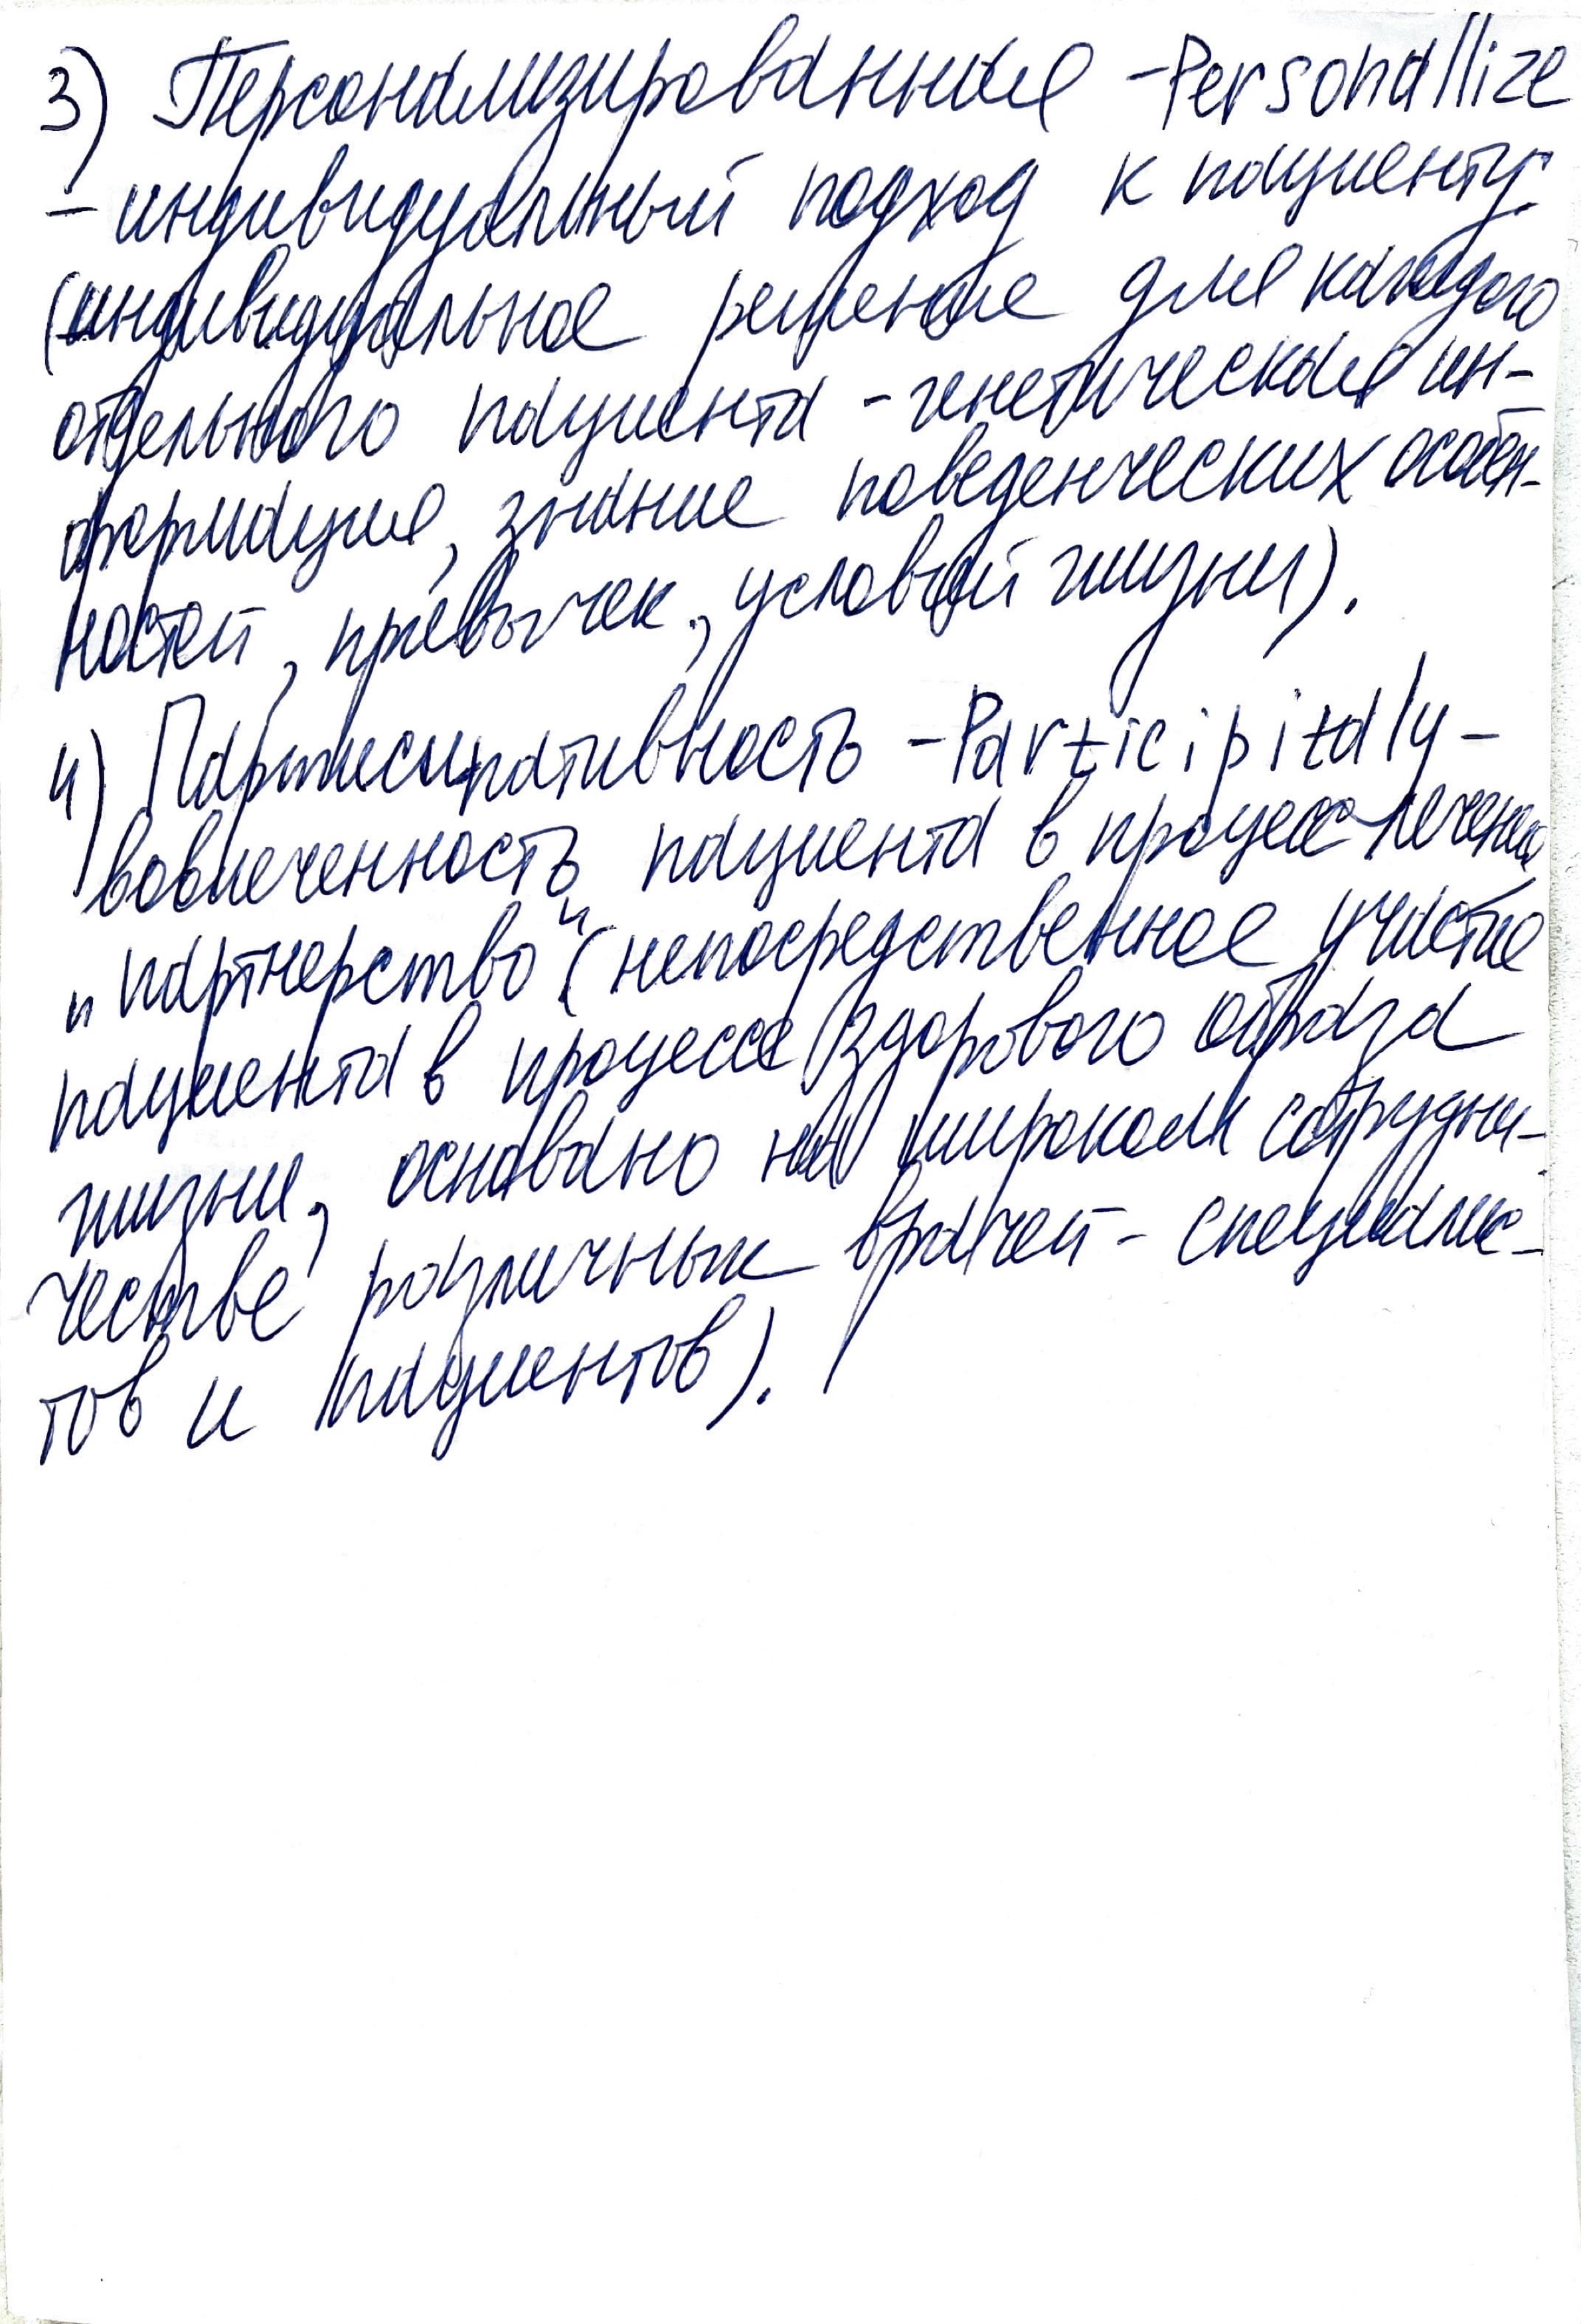 3) Персонализированные -Personallize
- индивидуальный подход к пациенту.
(индивидуальное решение для каждого
отдельного пациента - генетическая ин-
формация, знание поведенческих особен-
ностей, привычек, условий жизни).
4) Партисипативность - Particiрitally -
вовлеченность пациента в процесс лечения
„партнерство“ (непосредственное участие
пациента в процессе здорового образа
жизни, основано на широком сотрудни-
честве различных врачей - специалис-
тов и пациентов).